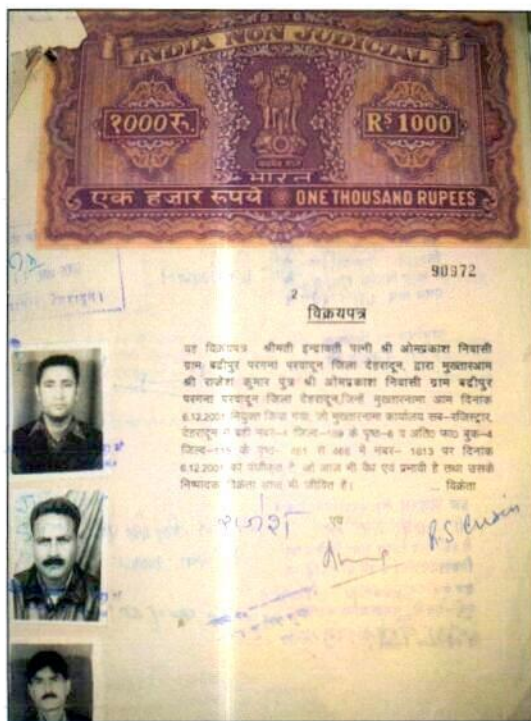 INDIA NON JUDICIAL
१000रु.
Rs 1000
सत्यमेव जयते
भारत
एक हजार रूपये ONE THOUSAND RUPEES
90972
2
विक्रयपत्र
यह विक्रयपत्र श्रीमती इन्द्रावती पत्नी श्री ओमप्रकाश निवासी
ग्राम बद्रीपुर परगना परवादून जिला देहरादून, द्वारा मुख्तारआम
श्री राजेश कुमार पुत्र श्री ओमप्रकाश निवासी ग्राम बद्रीपुर
परगना परवादून जिला देहरादून,जिन्हें मुख्तारनामा आम दिनांक
6.12.2001 नियुक्त किया गया, जो मुख्तारनामा कार्यालय सब-रजिस्ट्रार,
देहरादून में बही नंबर-4 जिल्द-189 के पृष्ठ-6 व अति0 फा0 बुक-4
जिल्द-115 के पृष्ठ- से 468 में नंबर- 1613 पर दिनांक
6.12.2001 को पंजीकृत है, जो आज भी वैध एवं प्रभावी है तथा उसके
निष्पादक विक्रेता आज भी जीवित हैं। ... विक्रेता
राजेश एवं